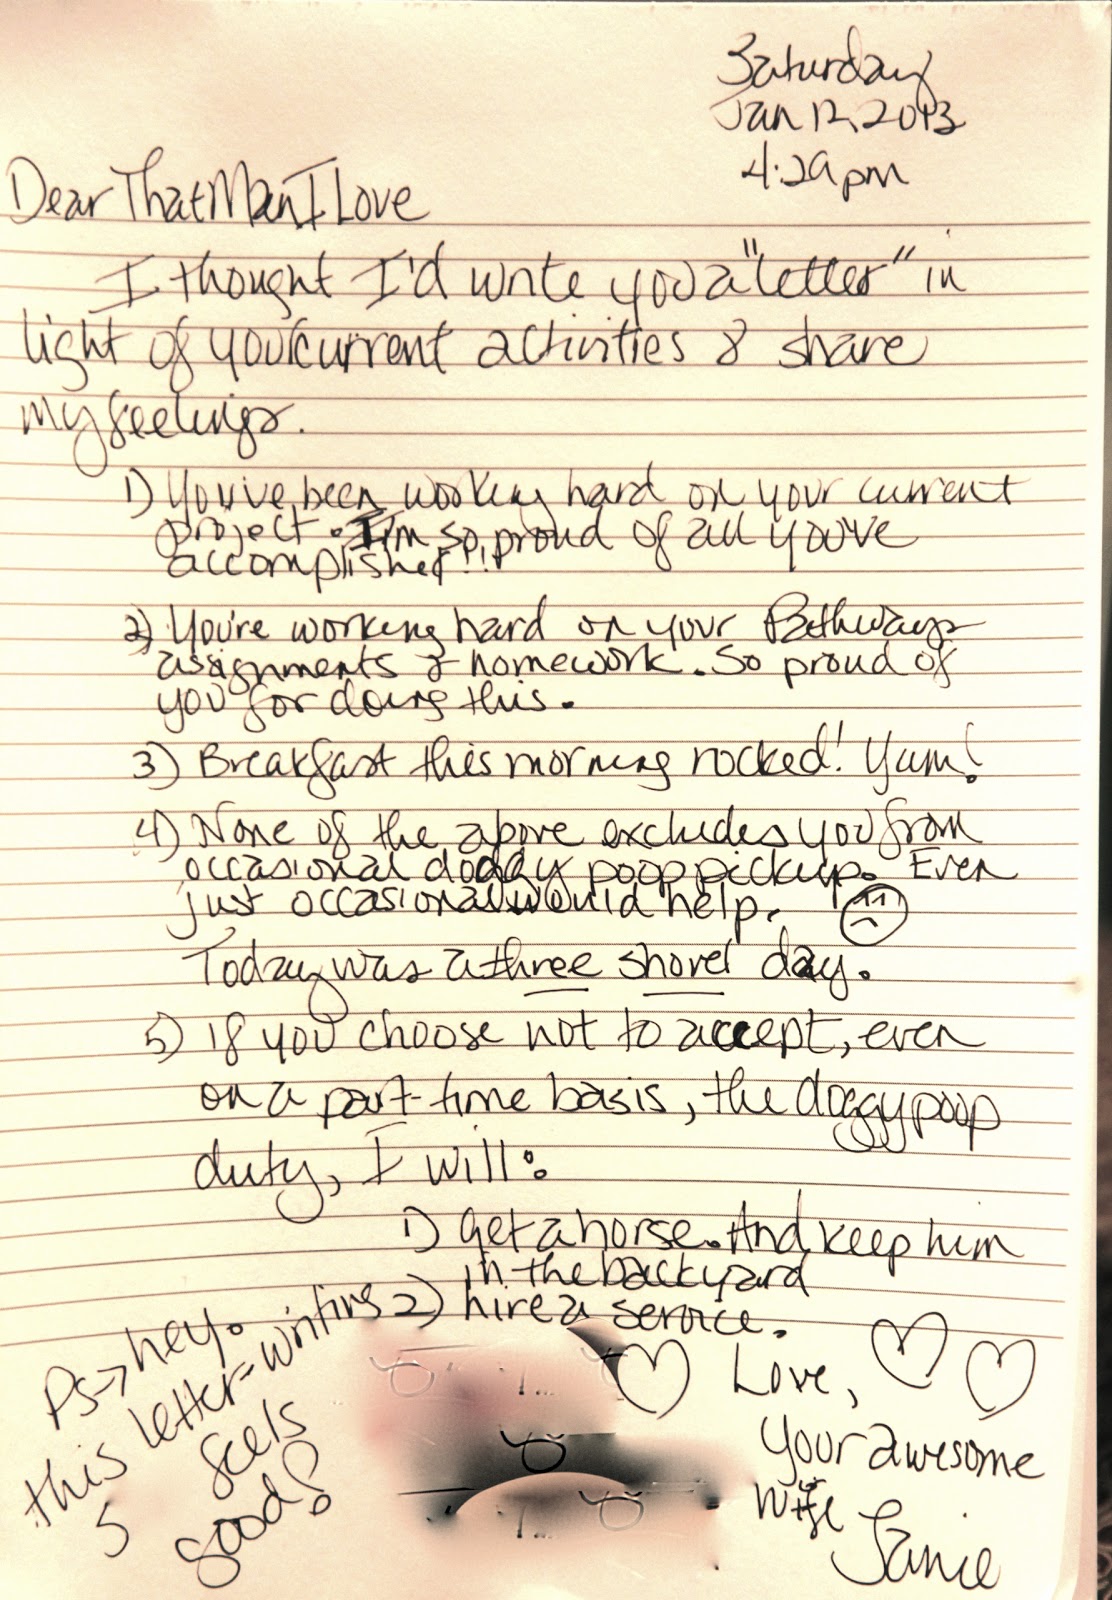 Saturday
Jan 12, 2013
4:29pm
Dear That Man I Love
I thought I'd write you a "letter" in
light of your current activities & share
my feelings.
1) You've been working hard on your current
project. I'm so proud of all you've
accomplished!!
2) You're working hard on your Pathways
assignments & homework. So proud of
you for doing this.
3) Breakfast this morning rocked! Yum!
4) None of the above excludes you from
occasional doggy poop pickup. Even
just occasional would help.
Today was a three shovel day.
5) If you choose not to accept, even
on a part-time basis, the doggy poop
duty, I will:
1) Get a horse. And keep him
in the backyard
2) hire a service.
Love,
Your awesome
wife
Janie
PS→ hey.
this letter-writing
feels
good!